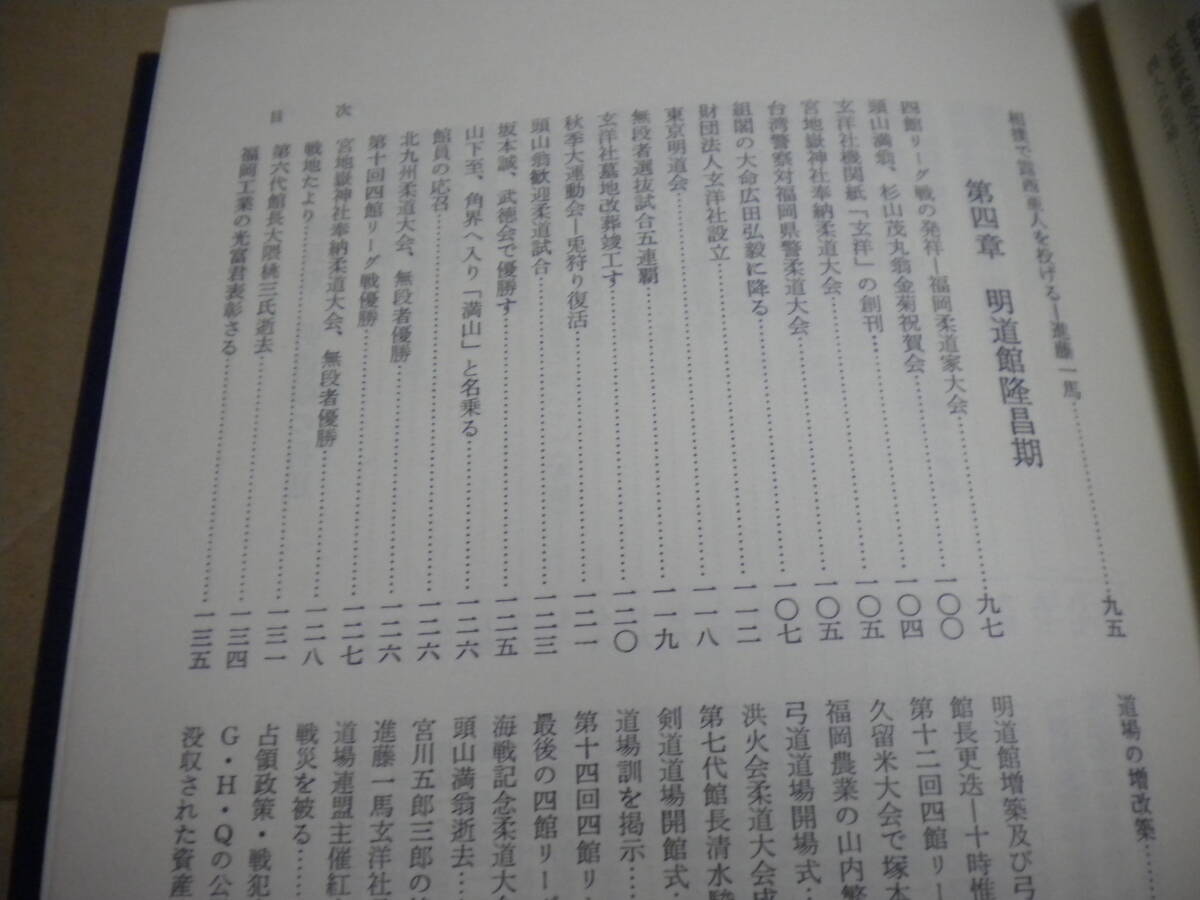 相撲で露西亜人を投げる―進藤一馬……九五
第四章　明道館隆昌期
四館リーグ戦の発祥―福岡柔道家大会……九七
頭山満翁、杉山茂丸翁金菊祝賀会……一〇〇
玄洋社機関紙「玄洋」の創刊……一〇四
宮地嶽神社奉納柔道大会……一〇五
台湾警察対福岡県警柔道大会……一〇五
組閣の大命広田弘毅に降る……一〇七
財団法人玄洋社設立……一一二
東京明道会……一一八
無段者選抜試合五連覇……一一九
玄洋社墓地改葬竣工す……一二〇
秋季大運動会―兎狩り復活……一二一
頭山翁歓迎柔道試合……一二三
坂本誠、武徳会で優勝す……一二五
山下至、角界へ入り「満山」と名乗る……一二六
館員の応召……一二六
北九州柔道大会、無段者優勝……一二六
第十回四館リーグ戦優勝……一二七
宮地嶽神社奉納柔道大会、無段者優勝……一二八
戦地たより……一三一
第六代館長大隈桃三氏逝去……一三四
福岡工業の光富君表彰さる……一三五
目次
道場の増改築……
明道館増築及び弓
館長更迭―十時惟
第十二回四館リー
久留米大会で塚本
福岡農業の山内繁
弓道道場開場式…
洪火会柔道大会
第七代館長清水
剣道道場開館式…
道場訓を掲示……
第十四回四館リ
最後の四館リー
海戦記念柔道大
頭山満翁逝去…
宮川五郎三郎の
進藤一馬玄洋社
道場連盟主催紅
戦災を被る……
占領政策・戦犯
Ｇ・Ｈ・Ｑの公
没収された資産